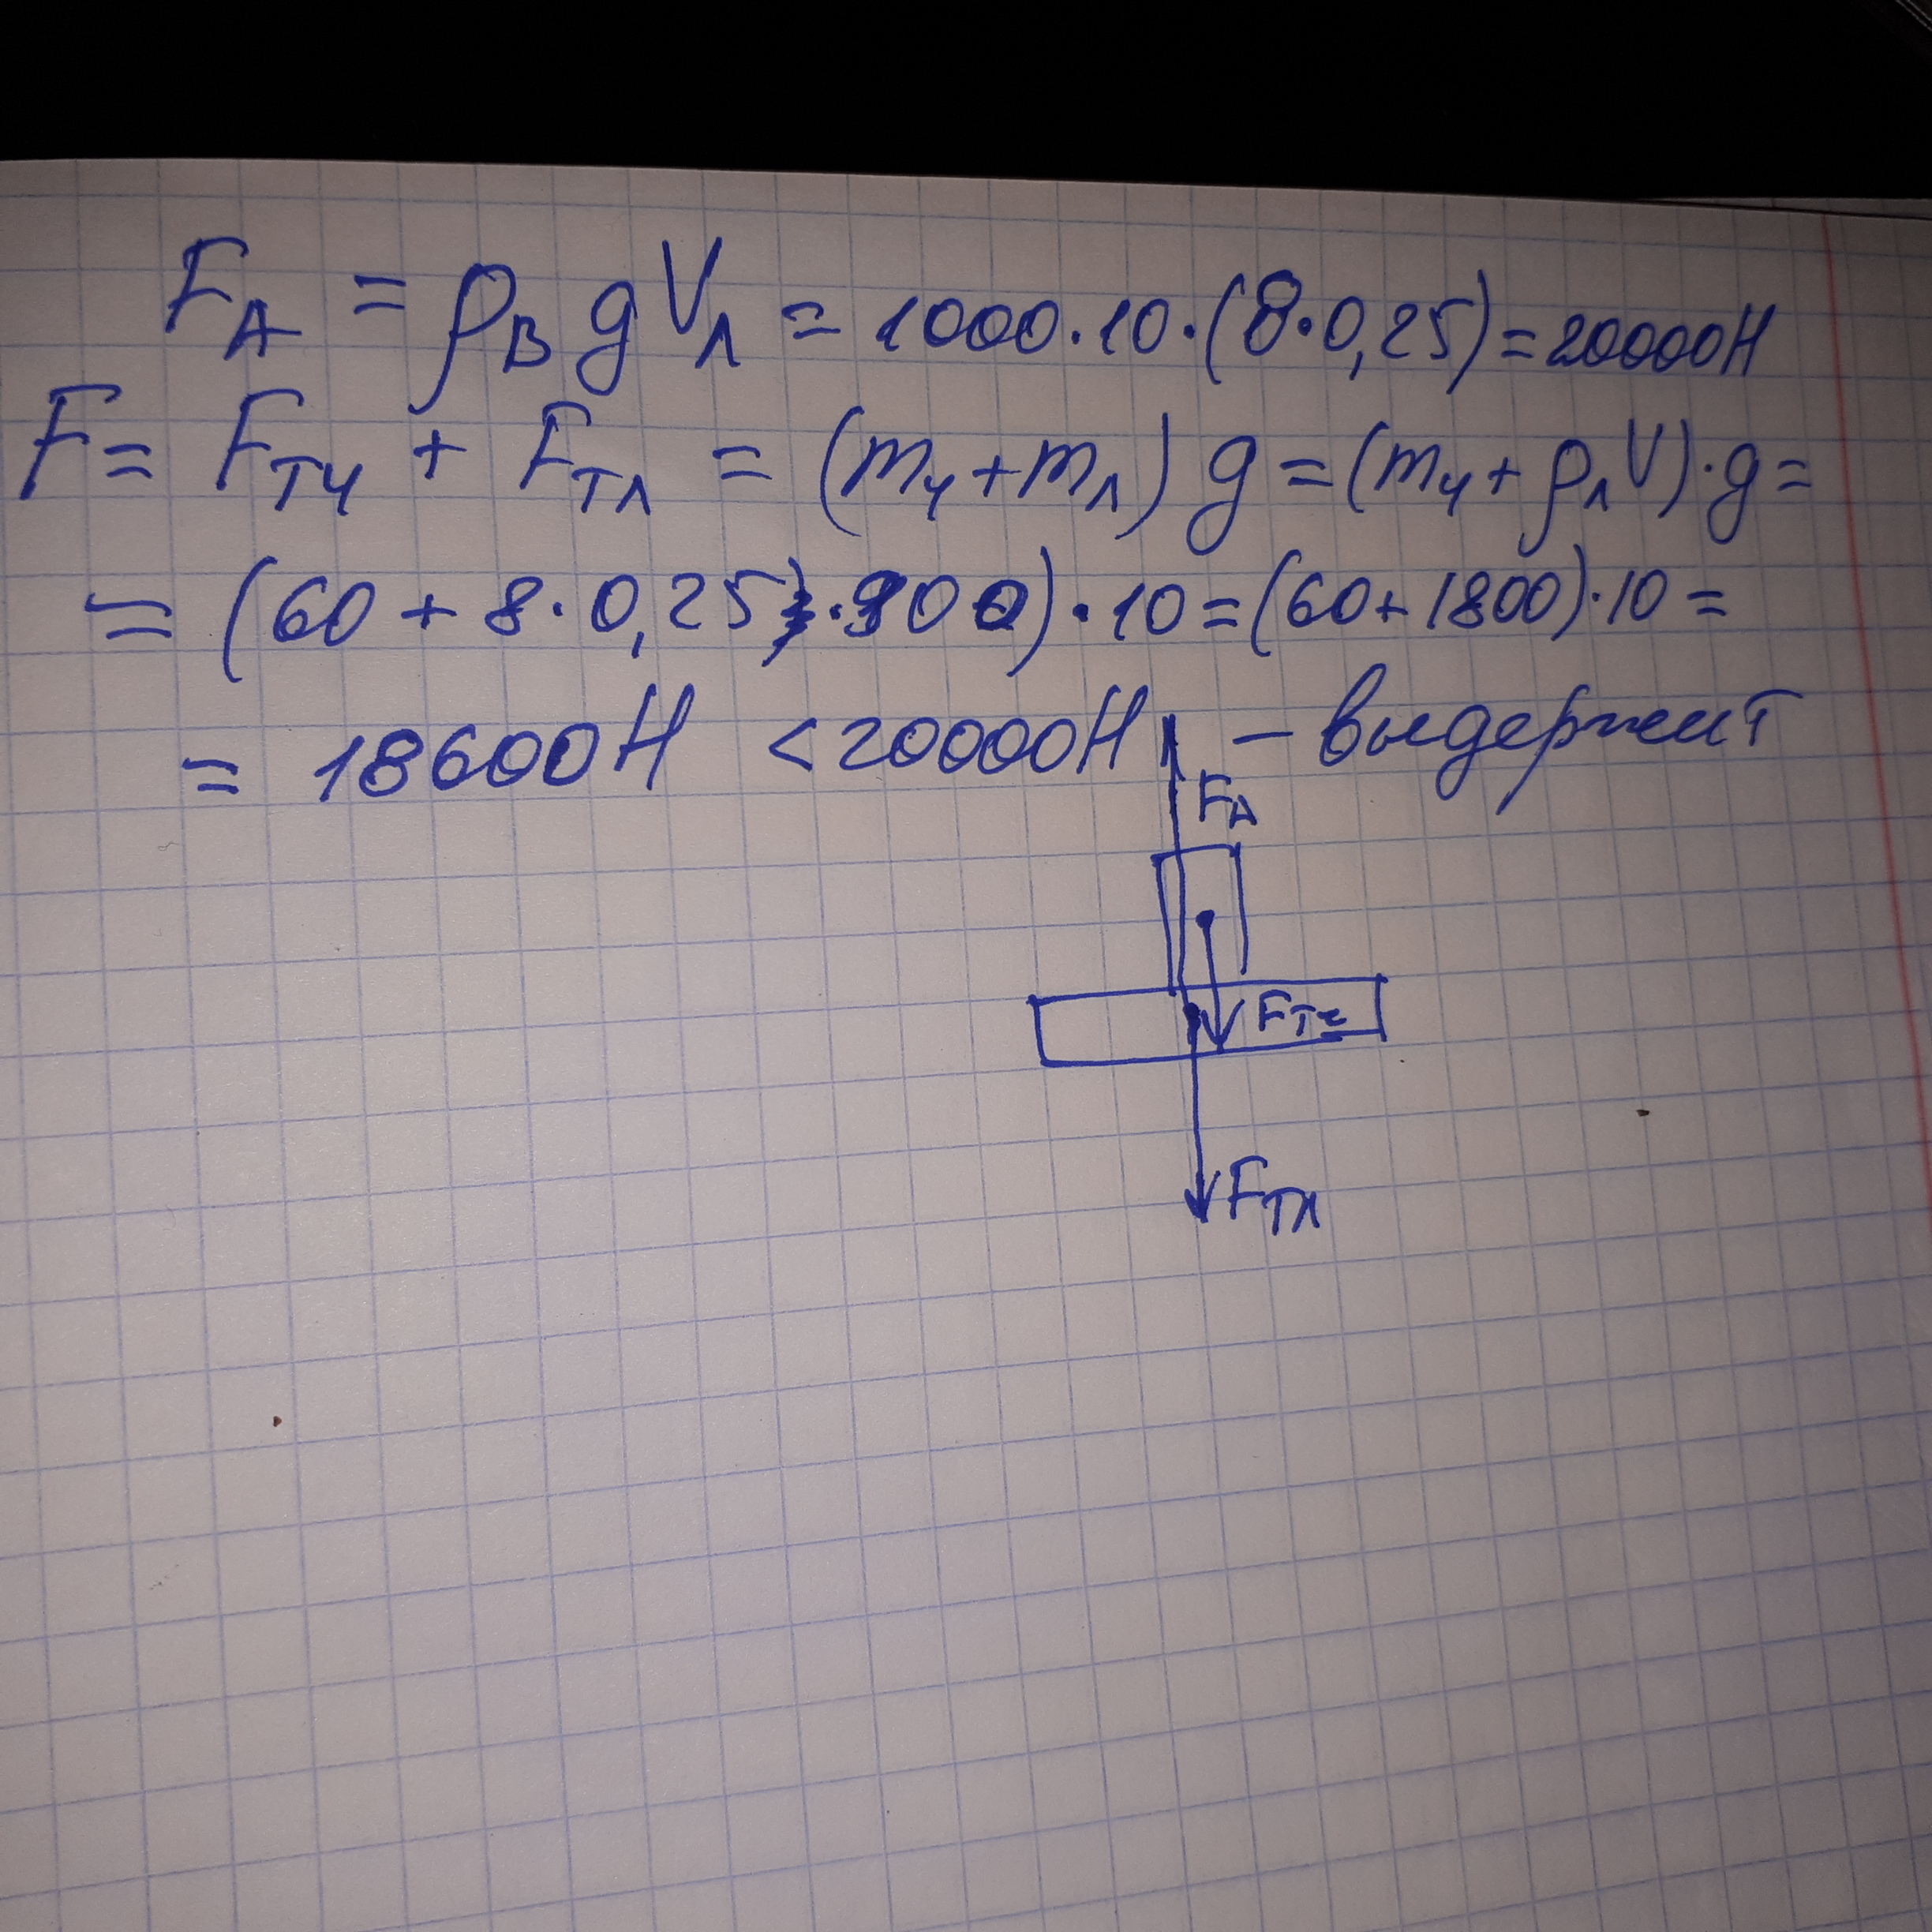 F_A = ρ_В g V_Л = 1000·10·(8·0,25) = 20000Н
F = F_ТЧ + F_ТЛ = (m_ч + m_Л) g = (m_ч + ρ_Л V)·g =
= (60 + 8·0,25·900)·10 = (60 + 1800)·10 =
= 18600Н < 20000Н – выдержит
F_A
F_ТЧ
F_ТЛ